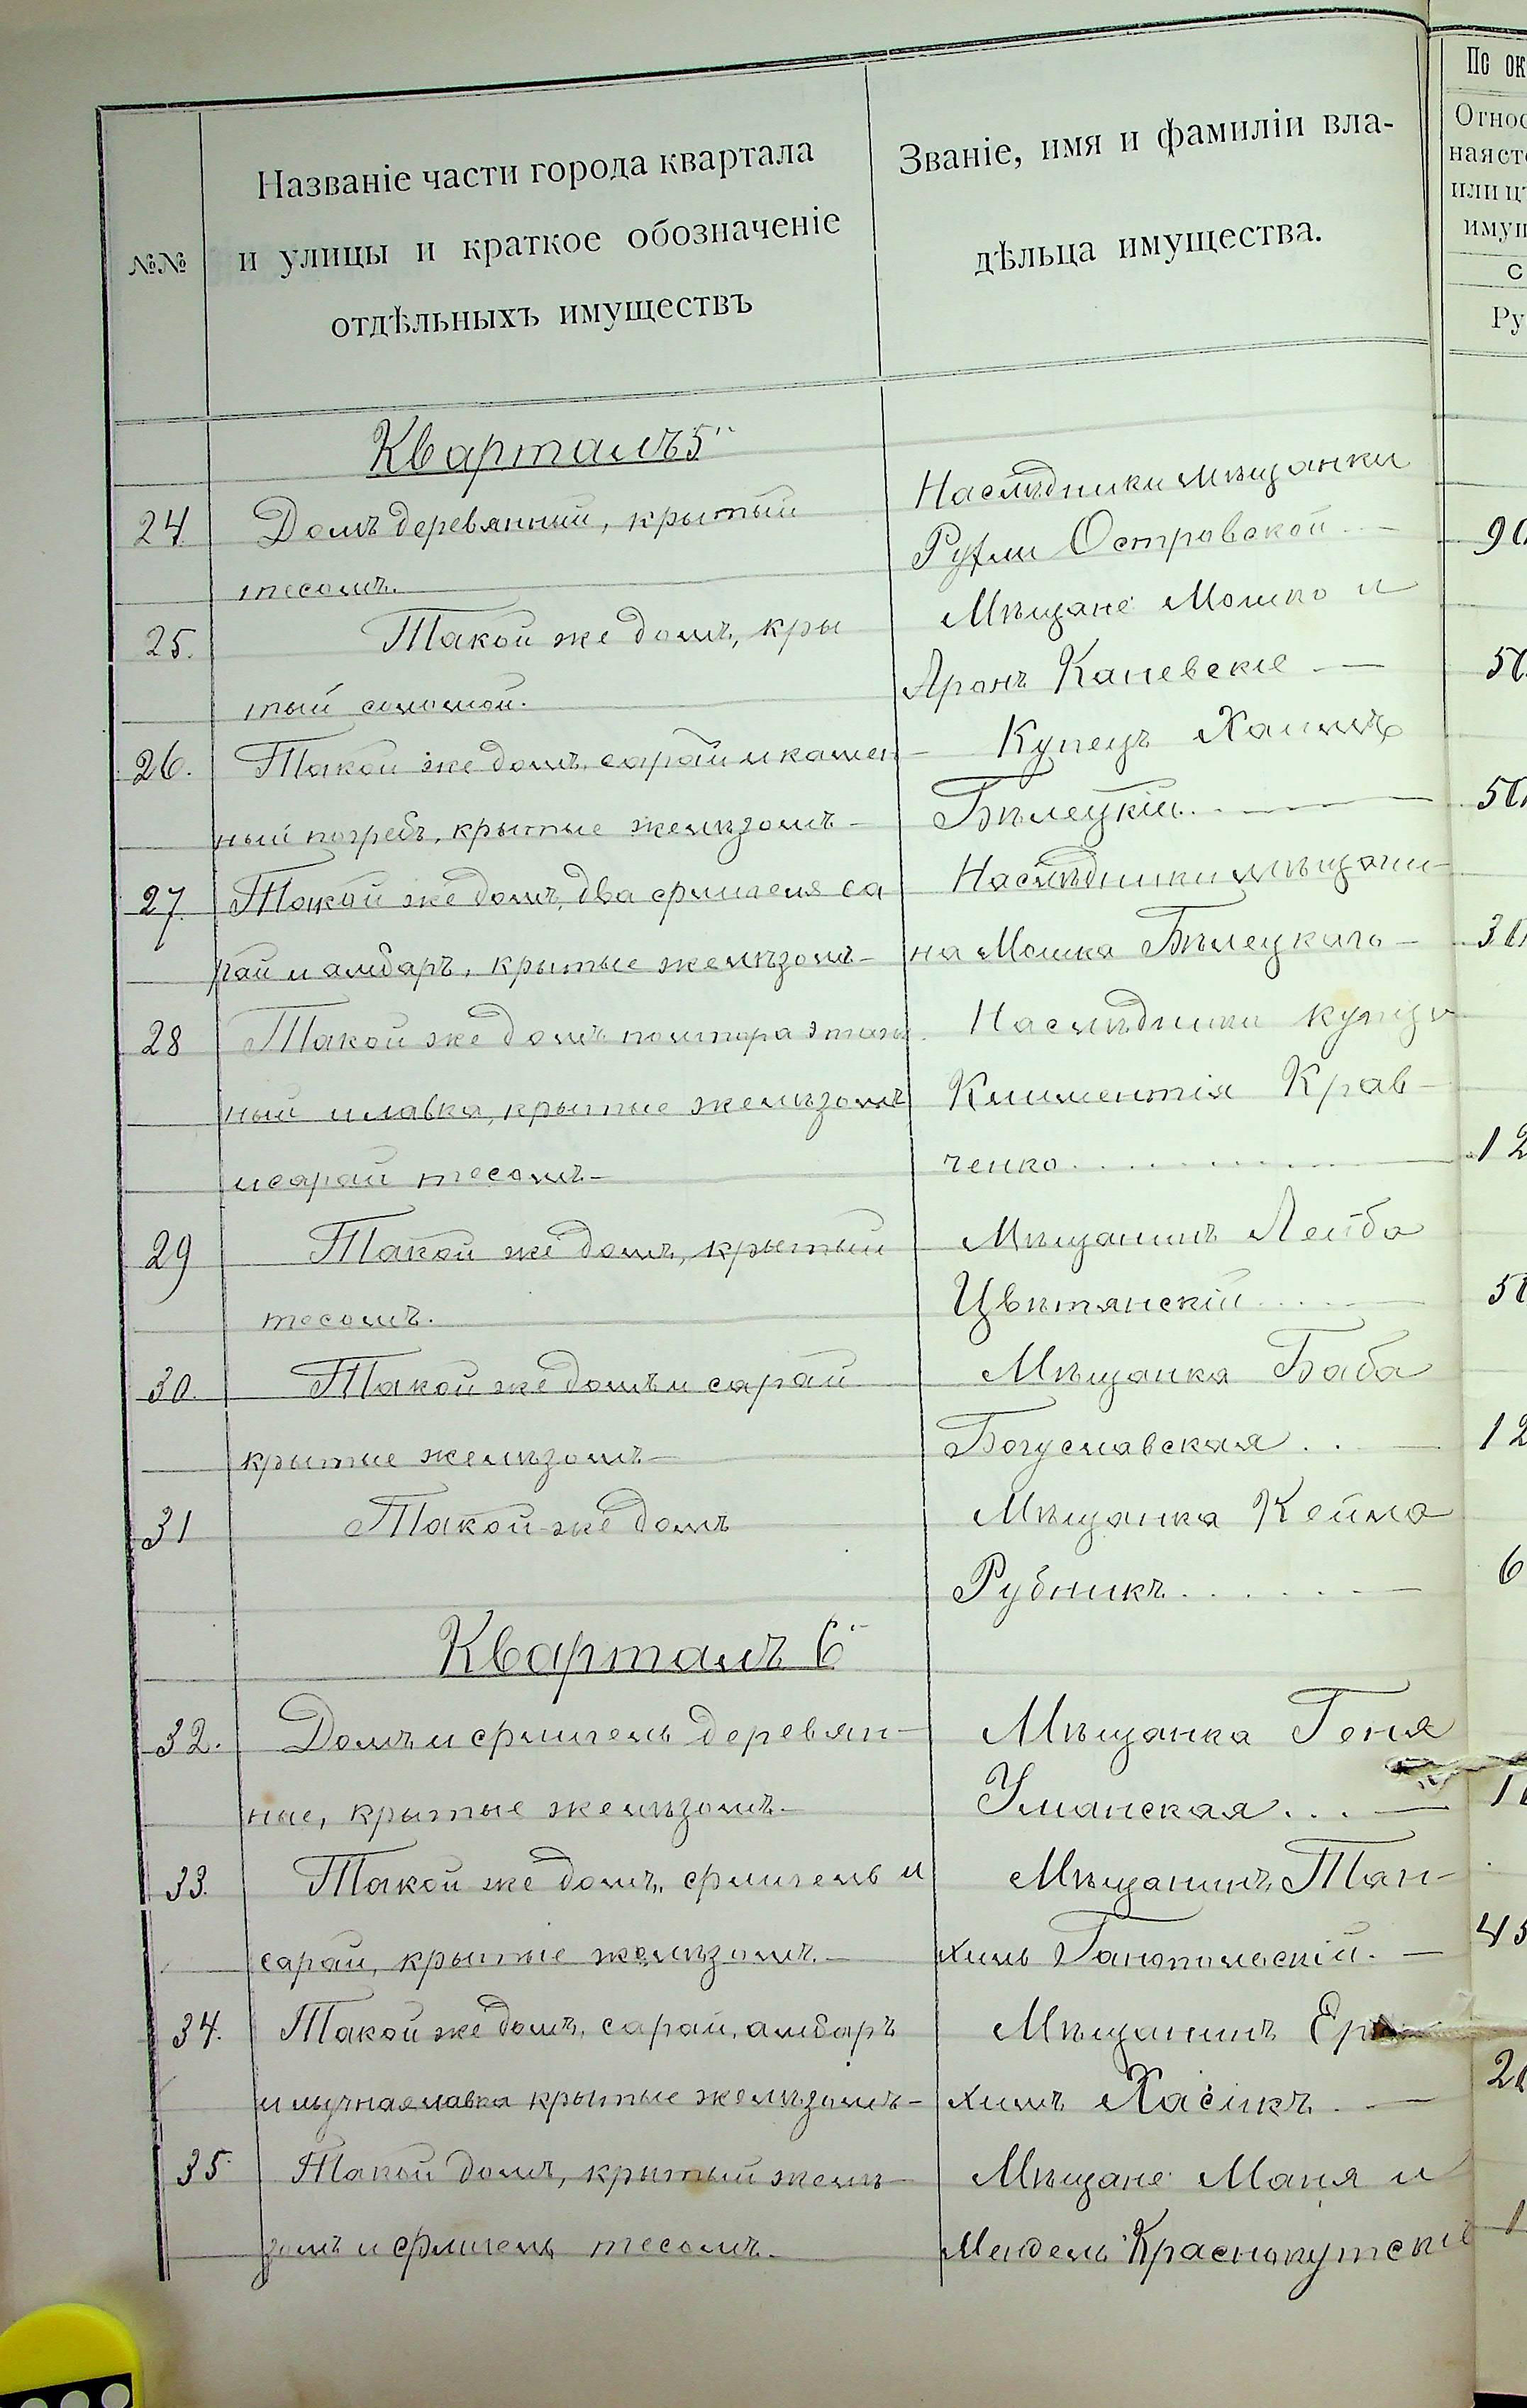 №№
Названіе части города квартала
и улицы и краткое обозначеніе
отдѣльныхъ имуществъ
Званіе, имя и фамиліи вла-
дѣльца имущества.
Пс ок
Относ
ная ст
или ц
имущ
с
Ру
Кварталъ 5
24. Домъ деревянный, крытый
тесомъ.
Наслѣдники мѣщанки
Руфли Островской
25. Такой же домъ, кры
тый соломой.
Мѣщане Мошко и
Аронъ Каневскіе
26. Такой же домъ, сарай и камен-
ный погребъ, крытые желѣзомъ
Купецъ Хаимъ
Бѣлецкій
27. Такой же домъ, два флигеля са
рай и амбаръ, крытые желѣзомъ
Наслѣдники мѣщани-
на Мошка Бѣлецкаго
28 Такой же домъ полтора этаж
ный и лавка, крытые желѣзомъ
и сарай тесомъ
Наслѣдники купца
Климентія Крав-
ченко
12
29 Такой же домъ, крытый
тесомъ.
Мѣщанинъ Лейба
Цвѣтянскій
30. Такой же домъ и сарай
крытые желѣзомъ
Мѣщанка Баба
Богуславская
12
31 Такой же домъ
Мѣщанка Кейла
Рубникъ
6
Кварталъ 6
32. Домъ и флигель деревян-
ные, крытые желѣзомъ
Мѣщанка Геня
Уманская
33. Такой же домъ, флигель и
сарай, крытые желѣзомъ
Мѣщанинъ Тан-
хиль Ганопольскій
45
34. Такой же домъ, сарай, амбаръ
и мучная лавка крытые желѣзомъ
Мѣщанинъ Ер
химъ Хасикъ
35. Такой домъ, крытый желѣ-
зомъ и флигель тесомъ.
Мѣщане Маня и
Мендель Краснокутскіе
1